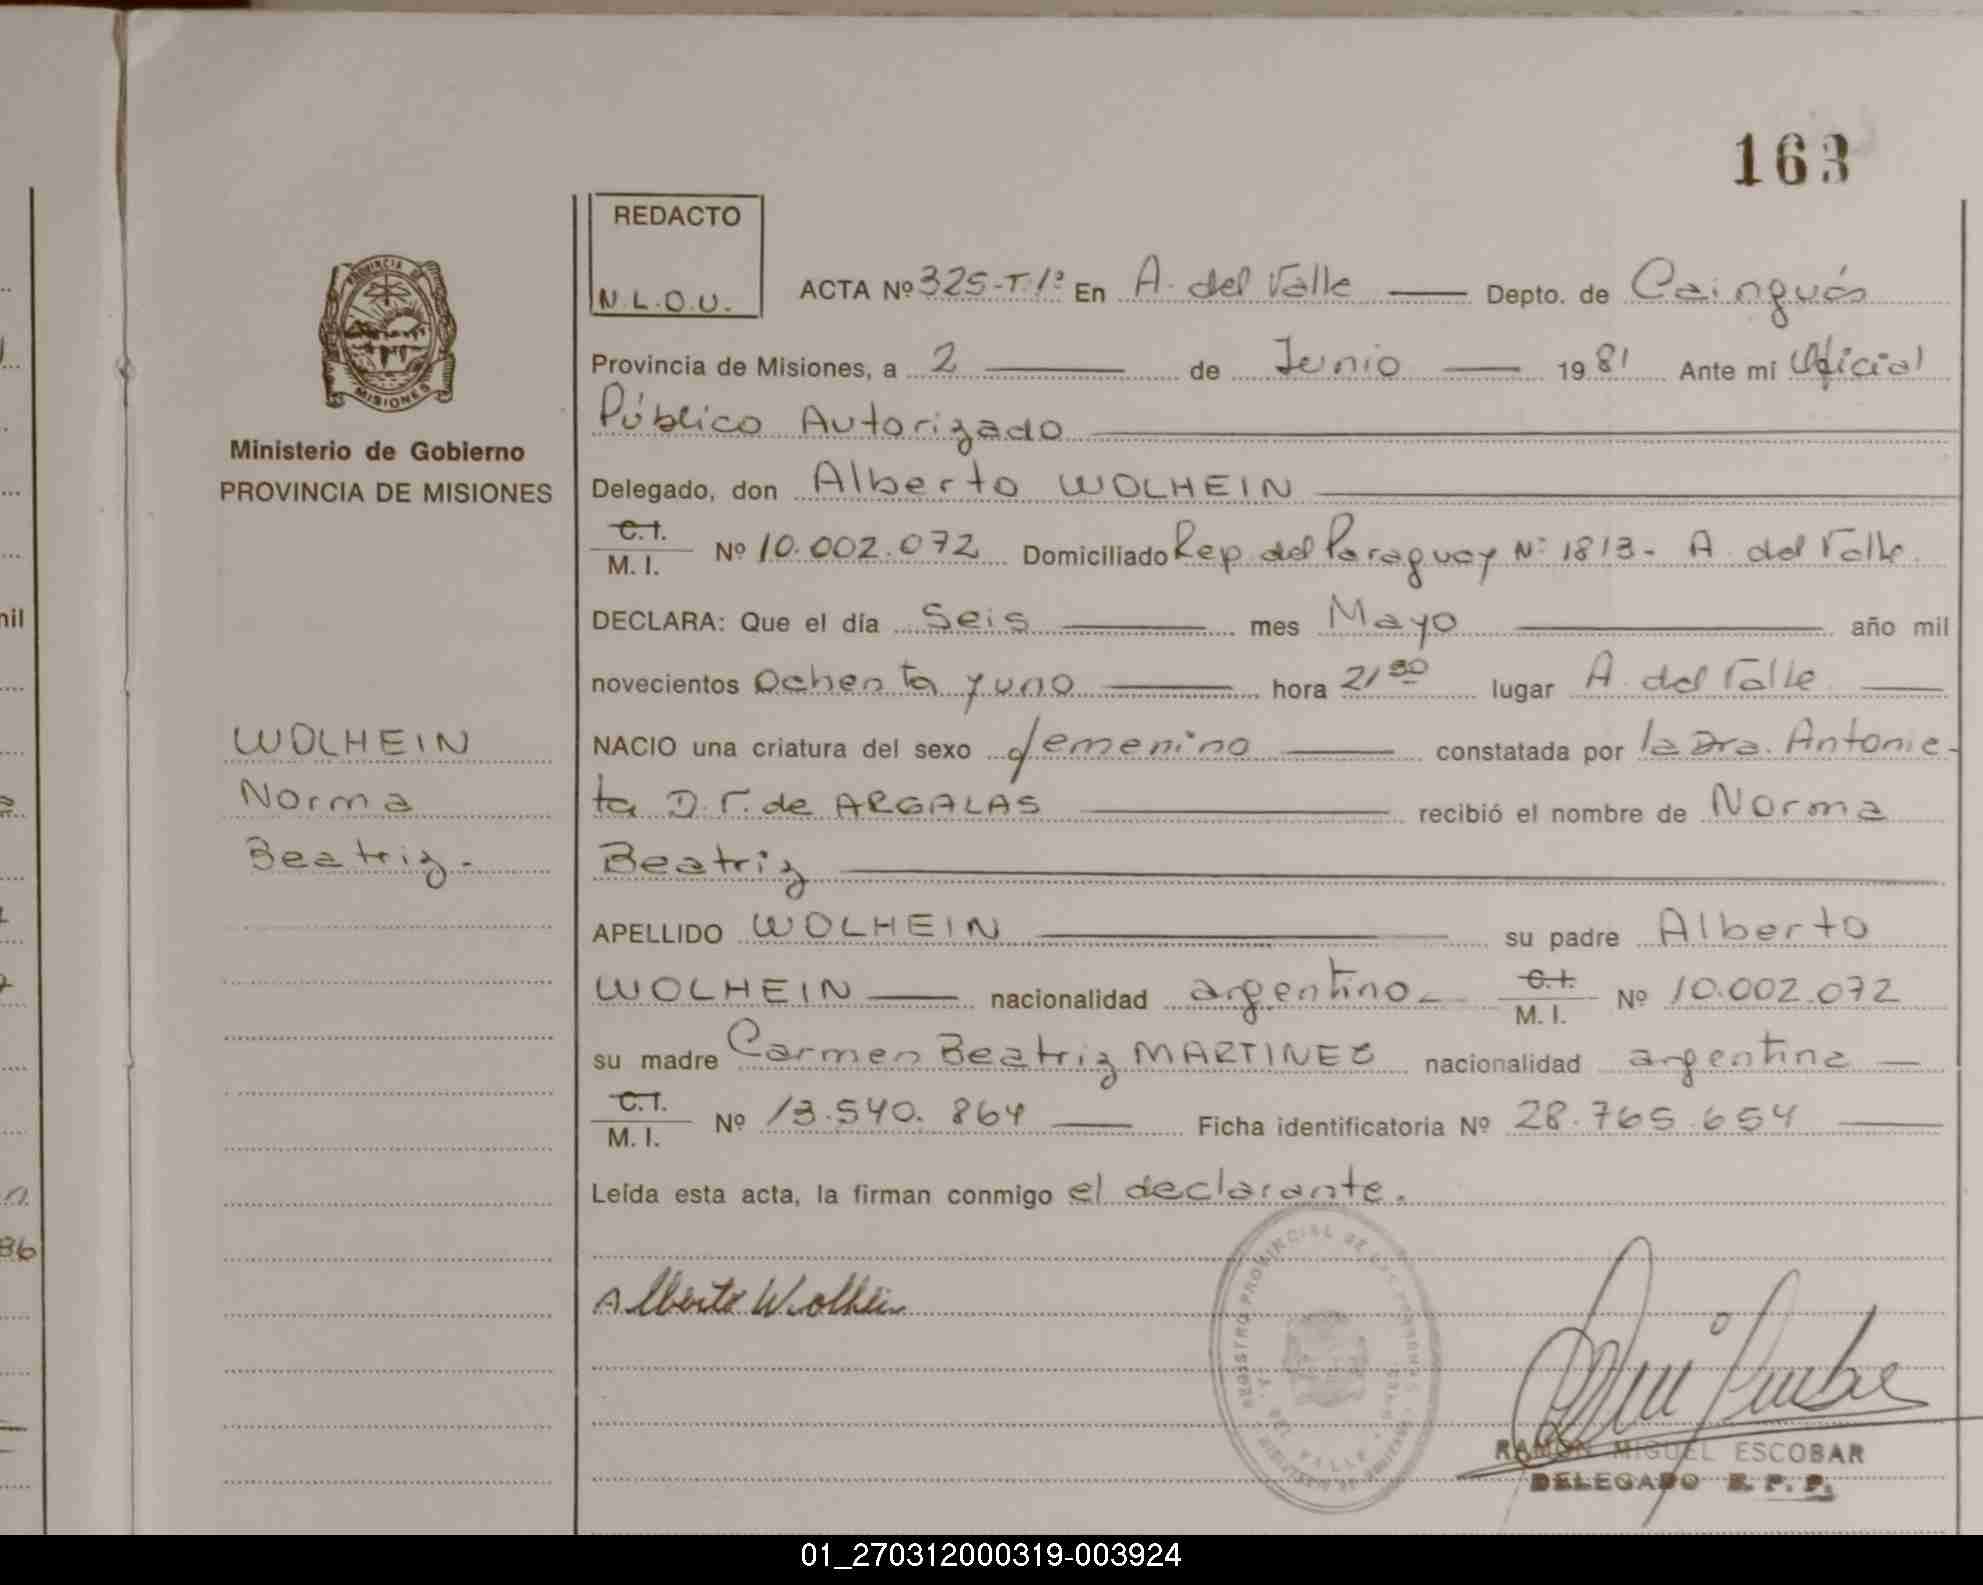 163
REDACTO
N.L.O.U.
ACTA Nº 325-T.1º En A. del Valle Depto. de Cainguás
Provincia de Misiones, a 2 de Junio 1981 Ante mi Oficial
Público Autorizado
Delegado, don Alberto WOLHEIN
C.I.
M. I. Nº 10.002.072 Domiciliado Rep. del Paraguay Nº 1813- A. del Valle.
DECLARA: Que el día Seis mes Mayo año mil
novecientos ochenta y uno hora 21 30 lugar A. del Valle
NACIO una criatura del sexo femenino constatada por la Dra. Antonie-
ta D.V. de ARGALAS recibió el nombre de Norma
Beatriz
APELLIDO WOLHEIN su padre Alberto
WOLHEIN nacionalidad argentino C.I.
M. I. Nº 10.002.072
su madre Carmen Beatriz MARTINEZ nacionalidad argentina
C.I.
M. I. Nº 13.540.864 Ficha identificatoria Nº 28.765.654
Leída esta acta, la firman conmigo el declarante.
Alberto Wolhein
RAMON MIGUEL ESCOBAR
DELEGADO R. P. P.
PROVINCIA DE
MISIONES
Ministerio de Gobierno
PROVINCIA DE MISIONES
WOLHEIN
Norma
Beatriz.
mil
86
REGISTRO PROVINCIAL DE LAS PERSONAS
DEL VALLE
01_270312000319-003924